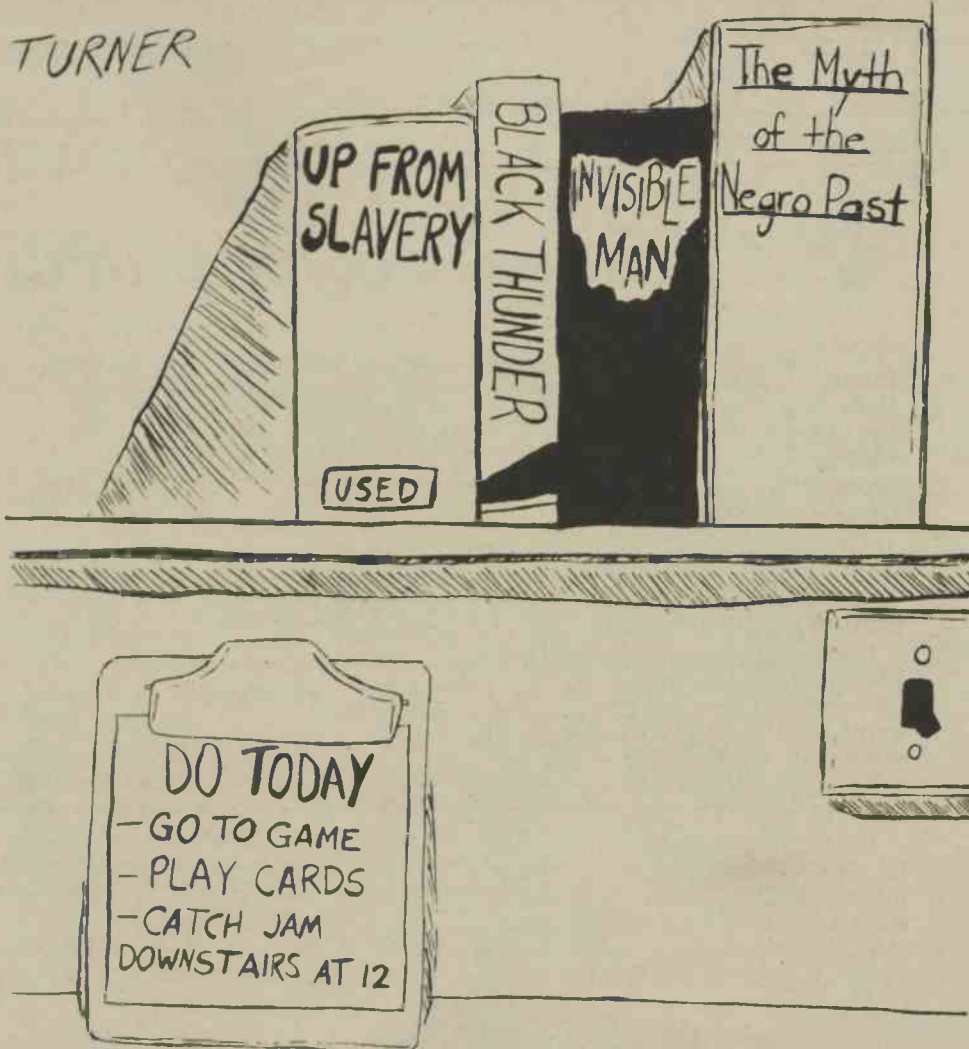 TURNER
UP FROM
SLAVERY
USED
BLACK THUNDER
INVISIBLE
MAN
The Myth
of the
Negro Past
DO TODAY
- GO TO GAME
- PLAY CARDS
- CATCH JAM
DOWNSTAIRS AT 12